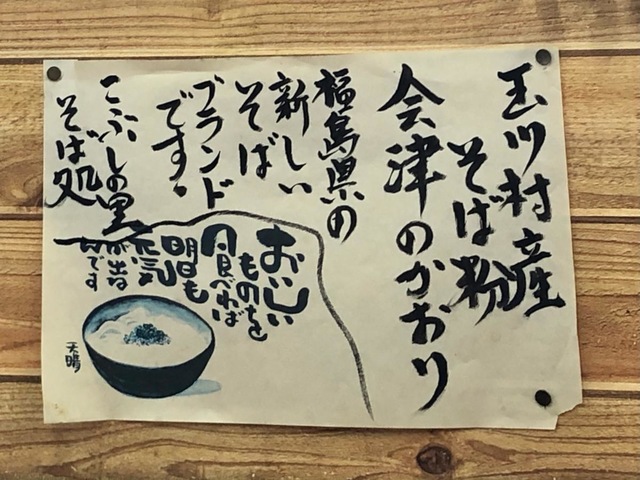 玉川村産
そば粉
会津のかおり
福島県の
新しい
そば
ブランド
です。
こぶしの里
そば処
おいしい
ものを
食べれば
明日も
元気
が出る
んです
天晴